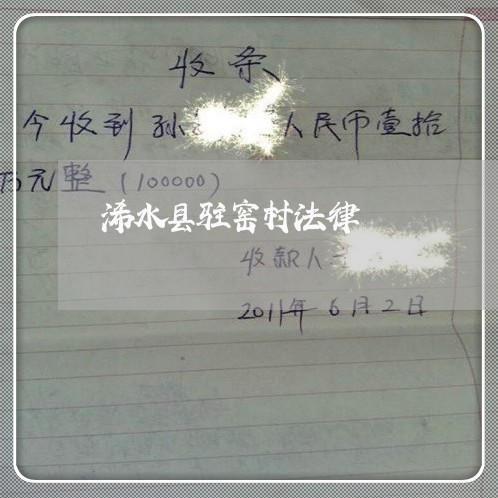 收条
今收到孙 人民币壹拾
万元整（100000）
浠水县驻窑村法律
收款人
2011年6月2日